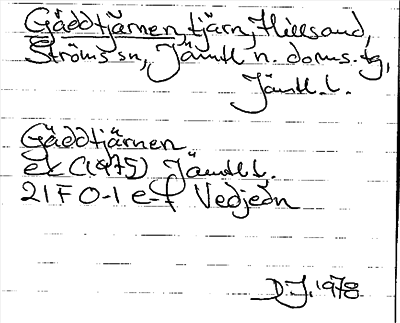 Gäddtjärnen, tjärn, Hillsand,
Ströms sn, Jämtl n. doms. tg,
Jämtl. l.
Gäddtjärnen
ek (1975) Jämtl l.
21F 0-1 e-f Vedjeön
D.J. 1978